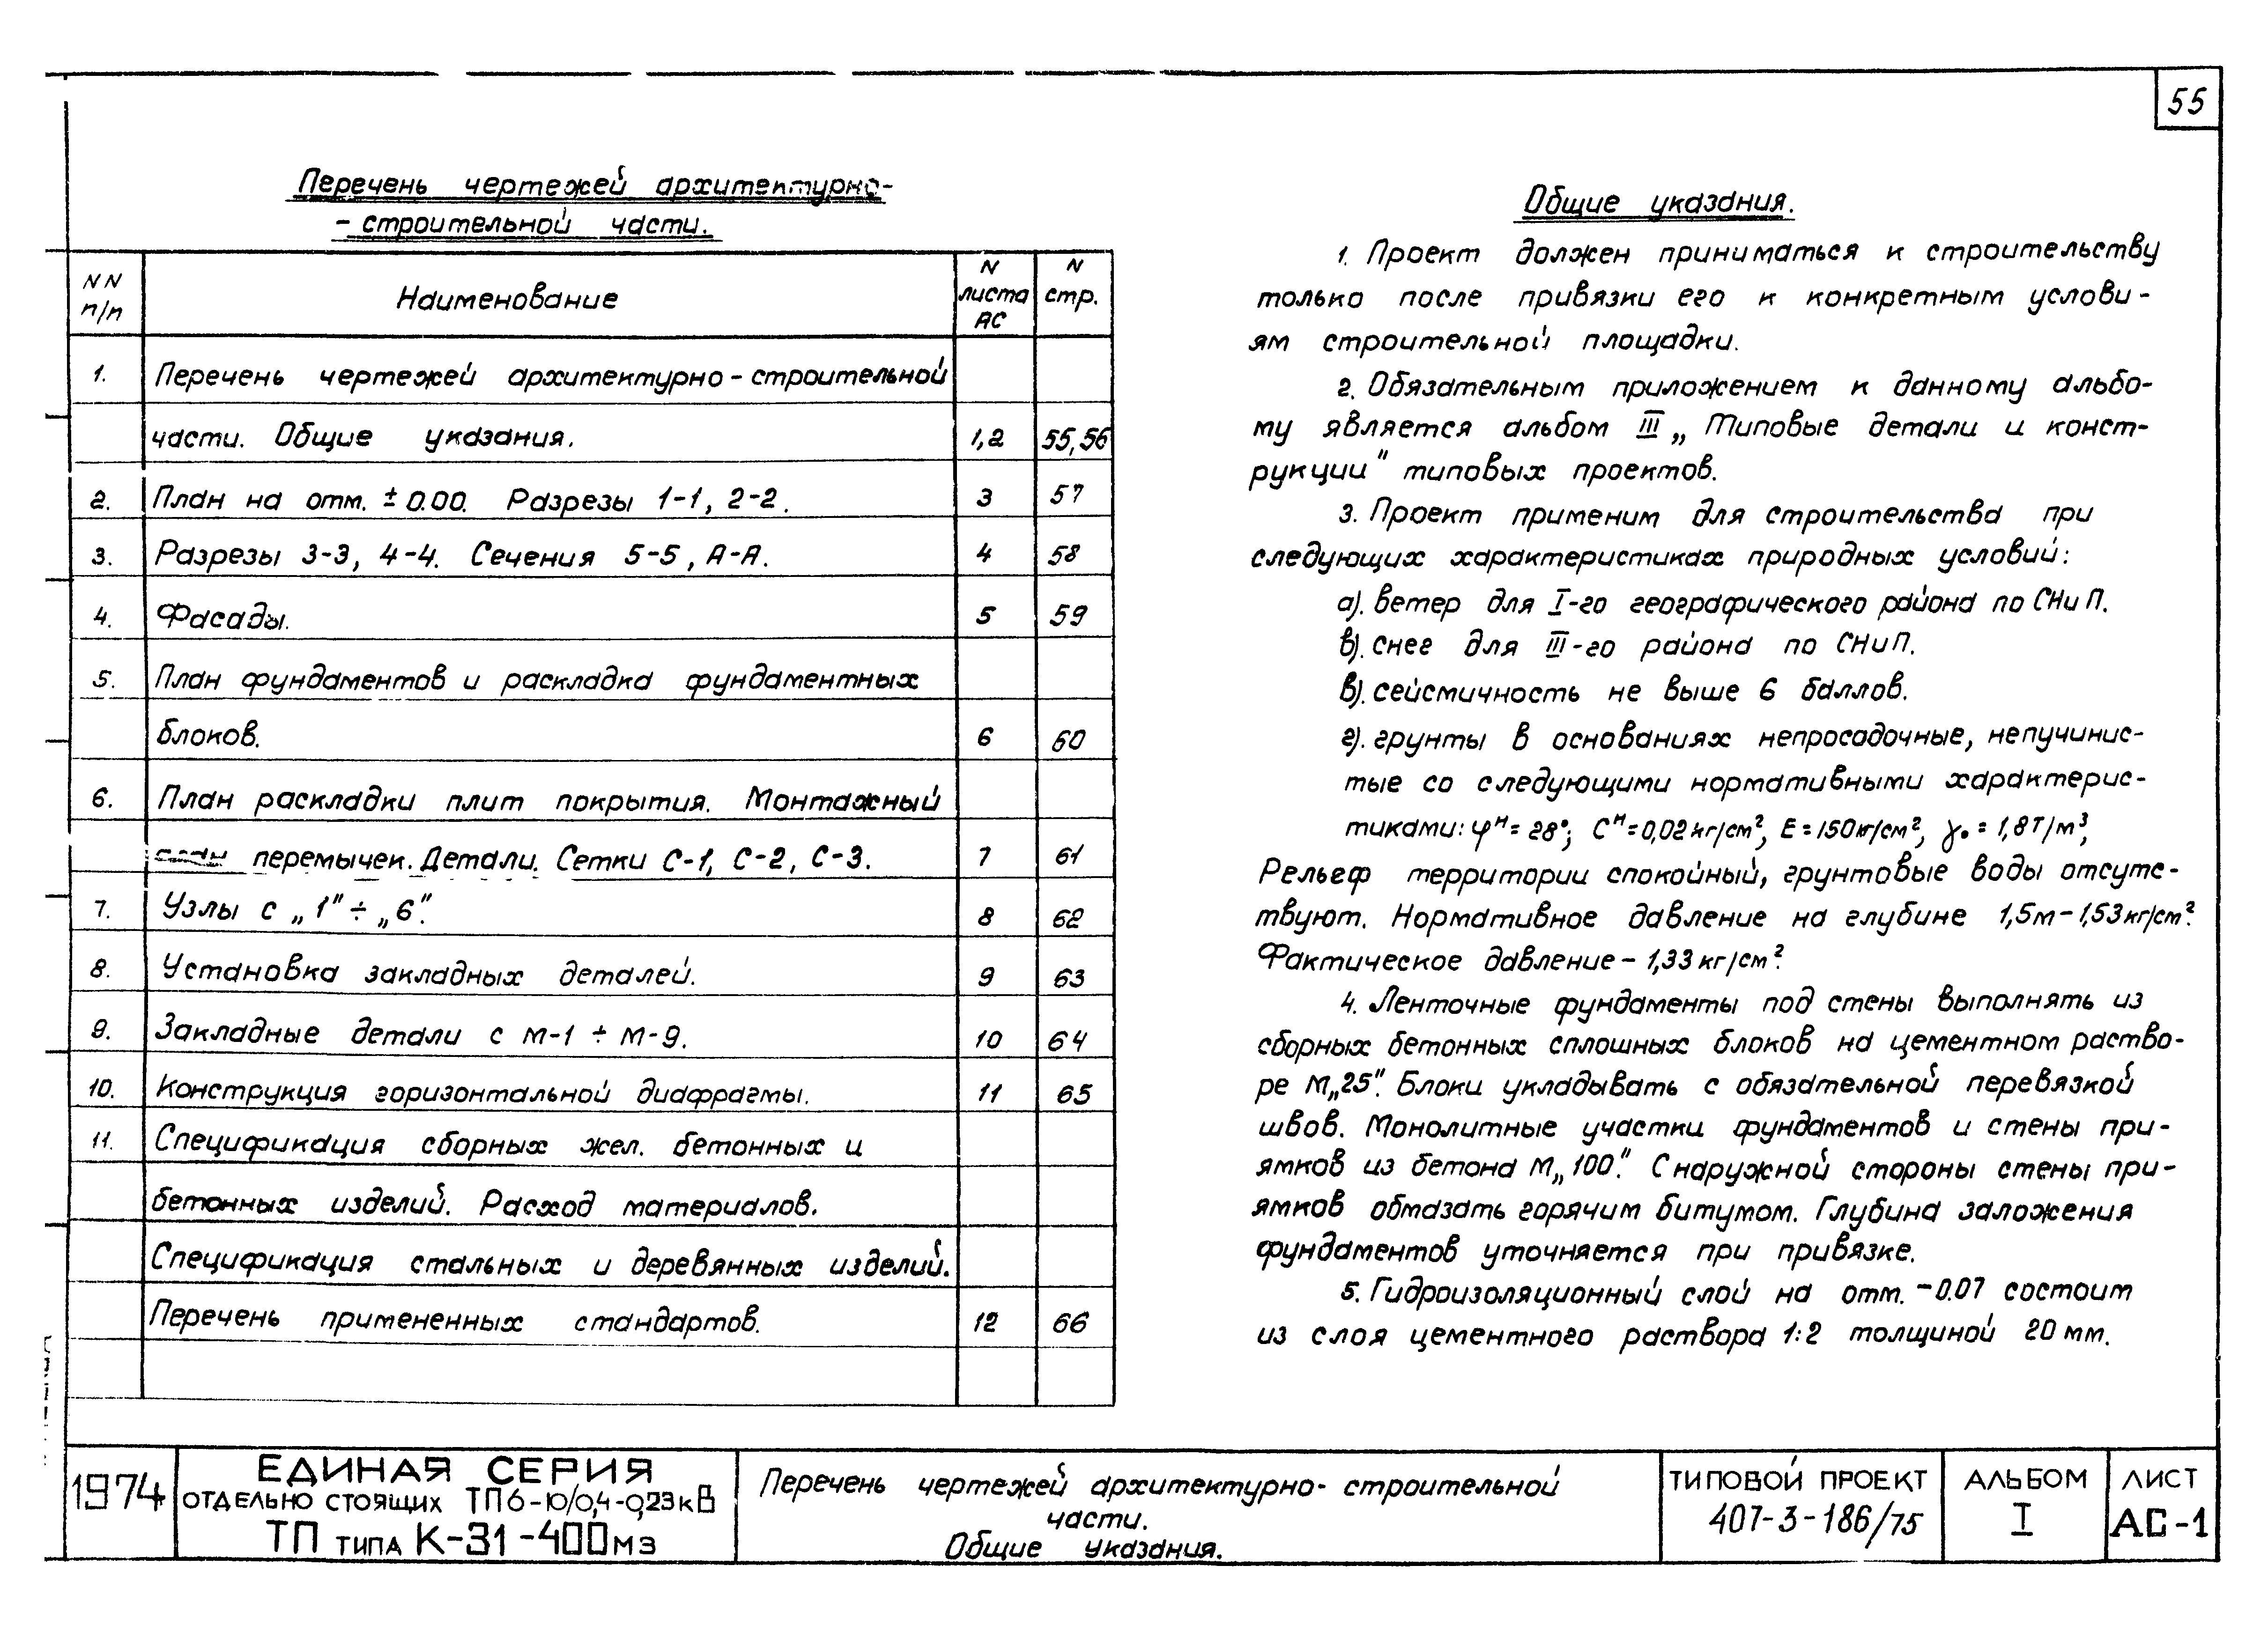 55
Перечень чертежей архитектурно-
-строительной части.
NN п/п
Наименование
N листа АС
N стр.
1. Перечень чертежей архитектурно-строительной
части. Общие указания. 1,2 55,56
2. План на отм. ± 0.00. Разрезы 1-1, 2-2. 3 57
3. Разрезы 3-3, 4-4. Сечения 5-5, А-А. 4 58
4. Фасады. 5 59
5. План фундаментов и раскладка фундаментных
блоков. 6 60
6. План раскладки плит покрытия. Монтажный
план перемычек. Детали. Сетки С-1, С-2, С-3. 7 61
7. Узлы с „1" ÷ „6". 8 62
8. Установка закладных деталей. 9 63
9. Закладные детали с М-1 ÷ М-9. 10 64
10. Конструкция горизонтальной диафрагмы. 11 65
11. Спецификация сборных жел. бетонных и
бетонных изделий. Расход материалов.
Спецификация стальных и деревянных изделий.
Перечень примененных стандартов. 12 66
Общие указания.
1. Проект должен приниматься к строительству
только после привязки его к конкретным услови-
ям строительной площадки.
2. Обязательным приложением к данному альбо-
му является альбом III „Типовые детали и конст-
рукции" типовых проектов.
3. Проект применим для строительства при
следующих характеристиках природных условий:
а). ветер для I-го географического района по СНиП.
в). снег для III-го района по СНиП.
в). сейсмичность не выше 6 баллов.
г). грунты в основаниях непросадочные, непучинис-
тые со следующими нормативными характерис-
тиками: φᴴ = 28°; Cᴴ = 0,02 кг/см², E = 150 кг/см², γ₀ = 1,8 т/м³,
Рельеф территории спокойный, грунтовые воды отсутс-
твуют. Нормативное давление на глубине 1,5м - 1,53 кг/см².
Фактическое давление - 1,33 кг/см².
4. Ленточные фундаменты под стены выполнять из
сборных бетонных сплошных блоков на цементном раство-
ре М„25". Блоки укладывать с обязательной перевязкой
швов. Монолитные участки фундаментов и стены при-
ямков из бетона М„100". С наружной стороны стены при-
ямков обмазать горячим битумом. Глубина заложения
фундаментов уточняется при привязке.
5. Гидроизоляционный слой на отм. -0.07 состоит
из слоя цементного раствора 1:2 толщиной 20 мм.
1974
ЕДИНАЯ СЕРИЯ
ОТДЕЛЬНО СТОЯЩИХ ТП 6-10/0,4-0,23 кВ
ТП ТИПА К-31-400 МЗ
Перечень чертежей архитектурно-строительной
части.
Общие указания.
ТИПОВОЙ ПРОЕКТ
407-3-186/75
АЛЬБОМ
I
ЛИСТ
АС-1